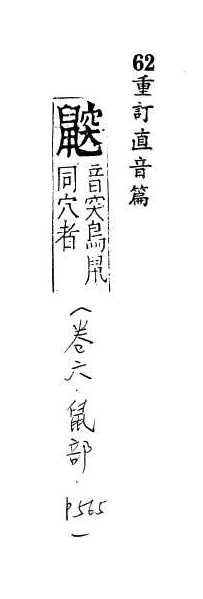 62重訂直音篇
鼵
音突鳥鼡
同穴者
(卷六.鼠部.p565)